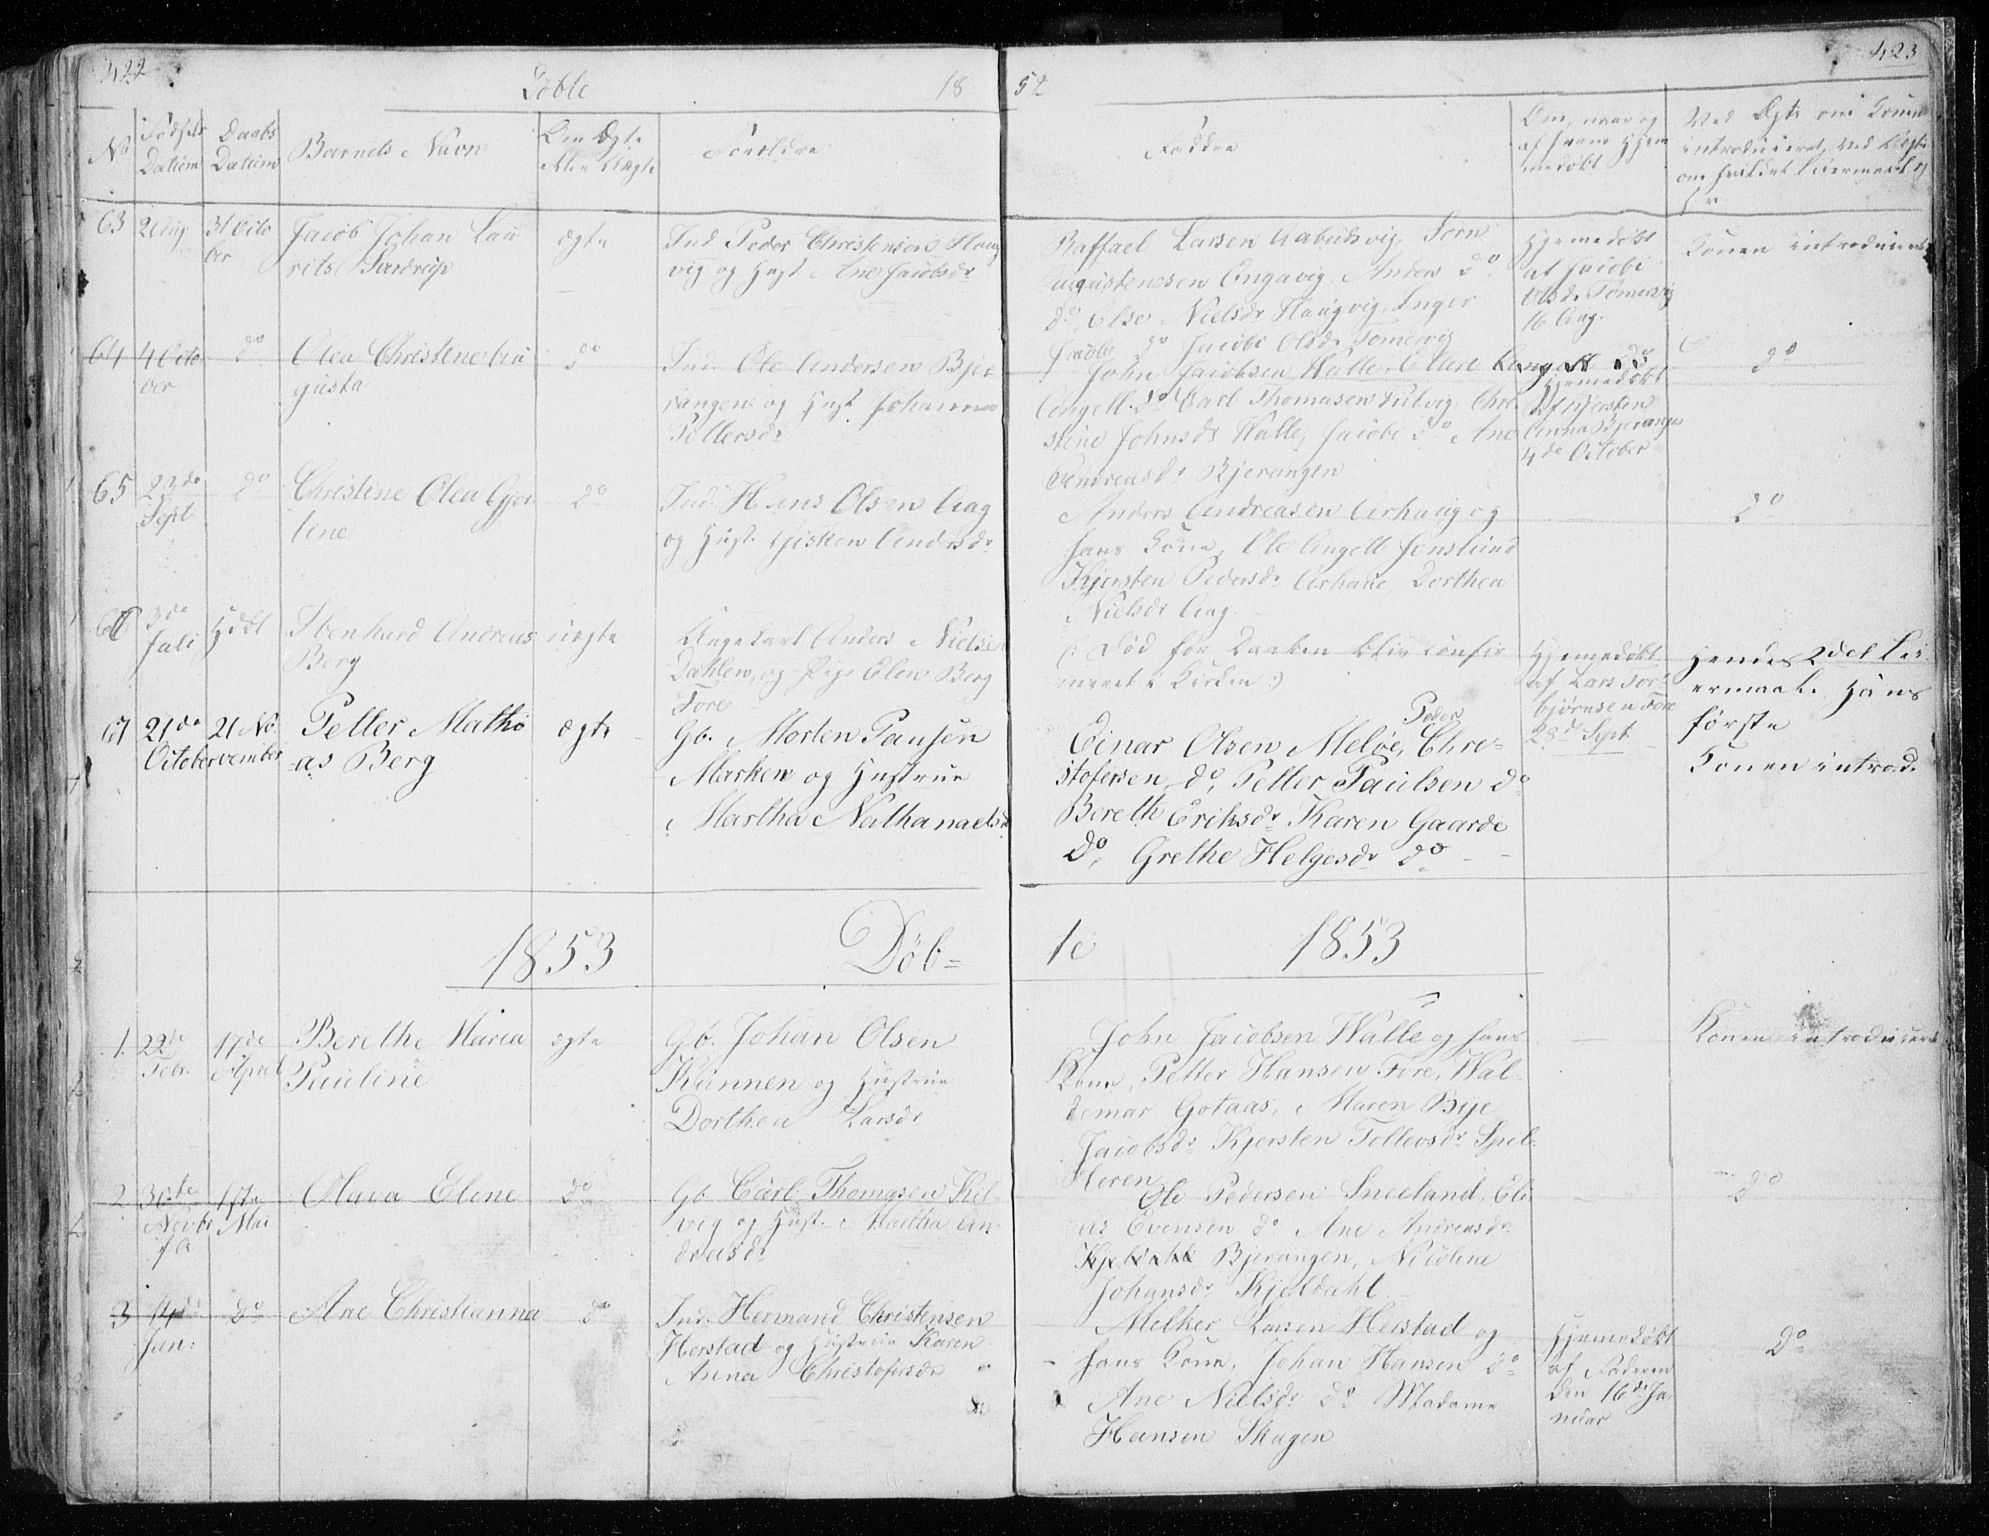 422
Døbte 18
52
423
No
Fødsels Datum
Daabs Datum
Barnets Navn
Om Ægte eller Uægte
Forældre
Faddre
Om, naar og af hvem Hjemmedøbt
Ved Ægte om Konen introduceret, Ved Uægte om
63
2 Aug
31 Octo
ber
Jacob Johan Lau
rits Sardrup
ægte
Ind. Peder Christensen Haug
vig og Hust Ane Jacobsdr
Raffael Larsen Aabudsvig, Jørn
Augustenesen Engavig, Anders do
do, Else Nielsdr Haugvig, Inger
Jacobs do Jacobi Olsdr Tomervig
Hjemedøbt
af Jacobi
Olsdr Tomervig
16 Aug.
Konen introduceret
64
4 Octo
ber
do
Olea Christine Au
gusta
do
Ind. Ole Andersen Bjer
rangen og Hust. Johanna
Pettersdr
John Jacobsen Walle, Ellert Angell do
Angell do Carl Thomasen Kilvig, Chri
stine Johnsdr Walle, Jacobi do Ane
Andreasdr Bjerangen
Hjemedøbt
af Kjersten
Anna Bjerange
4de October
do
65
23de
Sept
do
Christine Olea Gjer
tine
do
Ind. Hans Olsen Aag
og Hust. Gisken Andersdr
Anders Andreasen Arhaug og
hans Kone, Ole Angell Jenslund
Kjersten Pedersdr Arhaug, Dorthea
Nielsdr Aag.
do
66
3de
Juli
Hdbt
Ibenhard Andreas
Berg
uægte
Ungekarl Anders Nielsen
Dahlen, og Pige Elen Berg
Fore
(: Død før Daaben blev confir
meret i Kirken :)
Hjemedøbt
af Lars Tor
bjørnsen Fore
28de Sept.
Hendes 2det Lei
ermaal. Hans
første
67
21de
October
21 No
vember
Petter Mathi
as Berg
ægte
Gb. Morten Paulsen
Marken og Hustrue
Martha Nathanaelsdr
Peder
Einar Olsen Meløe, Chri=
stofersen do, Petter Paulsen do
Bereth Eriksdr Karen Gaarde
do, Grethe Helgesdr do
Konen introd.
1853
Døb=
te
1853
1.
22de
Febr.
17de
April
Berethe Maria
Pauline
ægte
Gb. Johan Olsen
Kunnen og Hustrue
Dorthea Larsdr
John Jacobsen Walle og hans
Kone, Petter Hansen Fore, Wal-
demar Gotaas, Maren Bye
Jacobsdr Kjersten Tollevsdr Spil-
deren
Konen introduceret
2
30te
Novbr
1ste
Mai
Olava Elene
do
Gb. Carl Thomasen Kil-
vig og Hust. Martha An-
dreasdr
Ole Pedersen Sneeland, Eli
as Evensen do Ane Andreasdr
Kjeldahl Bjerangen, Nicoline
Johansdr Kjeldahl
do
3
14de
Jan:
do
Ane Christianna
do
Ind. Hermand Christensen
Herstad og Hustrue Karen
Anna Christofersdr
Melker Larsen Herstad og
hans Kone, Johan Hansen do
Ane Nielsdr do Madame
Hansen Skagen
Hjemedøbt
af Faderen
den 16de Ja
nuar
do